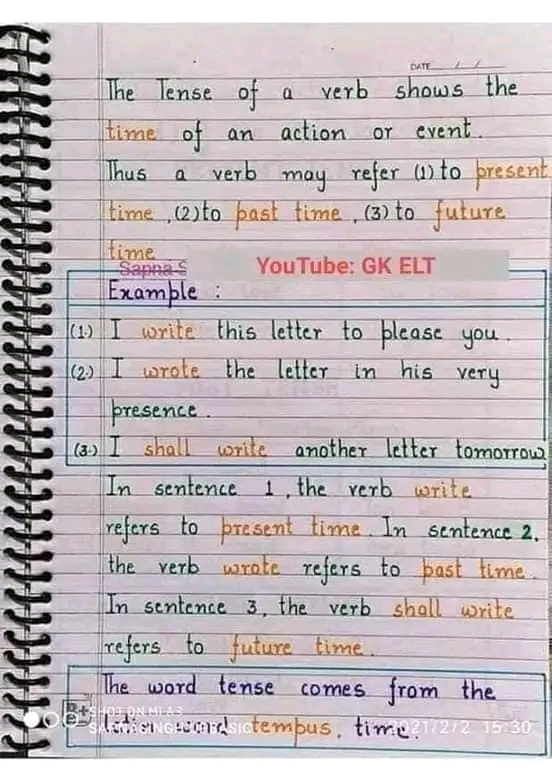 DATE / /
The Tense of a verb shows the
time of an action or event.
Thus a verb may refer (1) to present
time, (2) to past time, (3) to future
time
Sapna S
YouTube: GK ELT
Example :
(1.) I write this letter to please you.
(2.) I wrote the letter in his very
presence.
(3.) I shall write another letter tomorrow
In sentence 1, the verb write
refers to present time. In sentence 2,
the verb wrote refers to past time.
In sentence 3, the verb shall write
refers to future time.
The word tense comes from the
SHOT ON MLA3
Latin word tempus, time.
2021/2/2 15:30